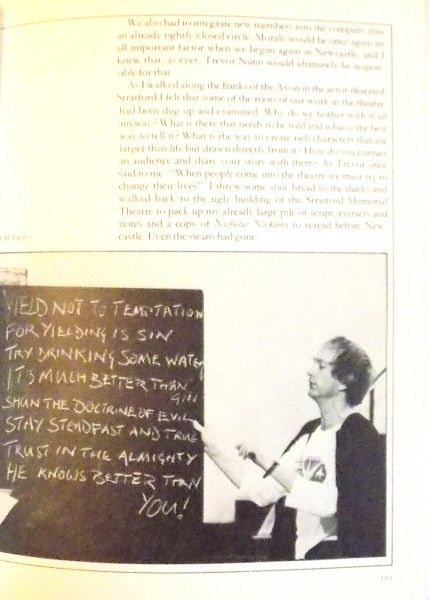 We also had to integrate new members into the company into
an already tightly-closed circle. Morale would be once again an
all-important factor when we began again in Newcastle, and I
knew that, as ever, Trevor Nunn would ultimately be respon-
sible for that.
As I walked along the banks of the Avon in the actor-deserted
Stratford I felt that some of the roots of our work in the theatre
had been dug up and examined. Why do we bother with it all
anyway? What is there that needs to be told and what is the best
way to tell it? What is the way to create rich characters that are
larger than life but drawn directly from it? How do you contact
an audience and share your story with them? As Trevor once
said to me: "When people come into the theatre we must try to
change their lives". I threw some stale bread to the ducks and
walked back to the ugly building of the Stratford Memorial
Theatre to pack up my already large pile of script, extracts and
notes and a copy of Nicholas Nickleby to reread before New-
castle. Even the swans had gone.
YIELD NOT TO TEMPTATION
FOR YIELDING IS SIN
TRY DRINKING SOME WATER
IT'S MUCH BETTER THAN
GIN
SHUN THE DOCTRINE OF EVIL
STAY STEADFAST AND TRUE
TRUST IN THE ALMIGHTY
HE KNOWS BETTER THAN
YOU!